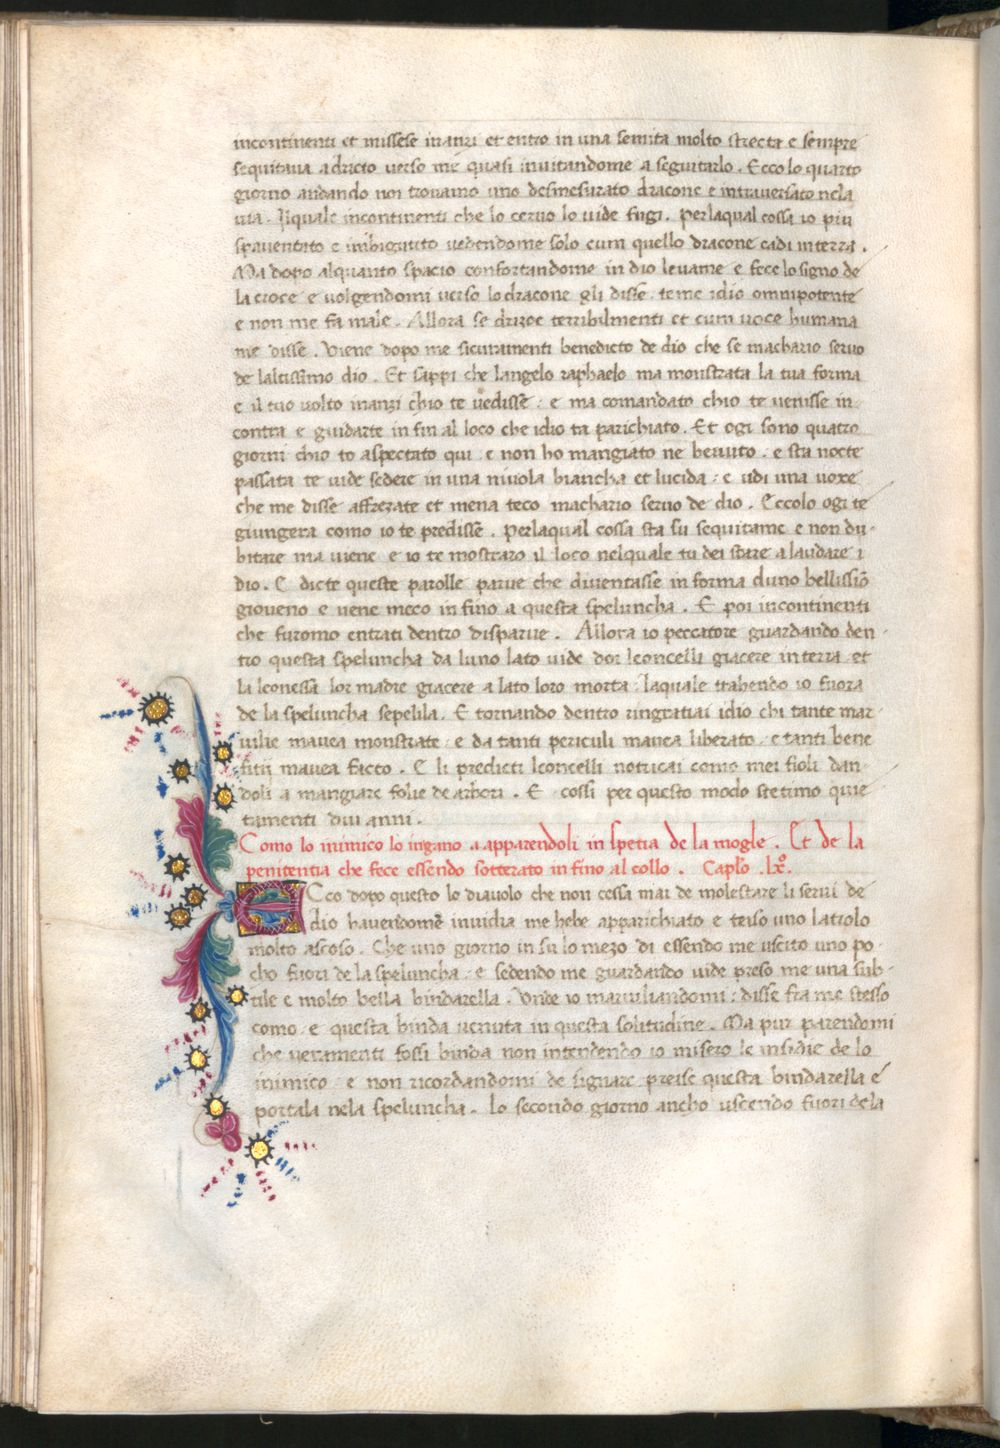 incontinenti et missese inanzi et entro in una semita molto strecta e sempre
sequitava adrieto verso me quasi invitandome a seguitarlo . Ecco lo quarto
giorno andando noi trovamo uno desmesurato dracone e intraversato nela
via . Ilquale incontinenti che lo cervo lo vide fugi . perlaqual cossa io piu
spaventato e imbigutito vedendome solo cum quello dracone cadi in terra .
Ma dopo alquanto spacio confortandome in dio levame e fece lo signo de
la croce e volgendomi verso lo dracone gli disse . teme idio omnipotente
e non me fa male . Allora se drizoe terribilmenti et cum voce humana
me disse . Viene dopo me sicuramenti benedicto de dio che se machario servo
de laltissimo dio . Et sappi che langelo raphaelo ma monstrata la tua forma
e il tuo volto inanzi chio te vedisse : e ma comandato chio te venisse in
contra e guidarte in fin al loco che idio ta parichiato . Et ogi sono quatro
giorni chio to aspectato qui . e non ho mangiato ne bevuto . e sta nocte
passata te vide sedere in una nivola biancha et lucida : e udi una voxe
che me disse affrezate et mena teco machario servo de dio . Eccolo ogi te
giungera como io te predisse . perlaqual cossa sta su sequitame e non du-
bitare ma viene e io te mostraro il loco nelquale tu dei stare a laudare i
dio . E dicte queste parolle parve che diventasse in forma duno bellissiō
gioveno e vene meco in fino a questa speluncha . E poi incontinenti
che furomo entrati dentro disparve . Allora io peccatore guardando den-
tro questa speluncha da luno lato vide doi leoncelli giacere in terra et
la leonessa lor madre giacere a lato loro morta : laquale trahendo io fuora
de la speluncha sepelila . E tornando dentro ringratiai idio chi tante mar-
vilie mavea monstrate . e da tanti periculi mavea liberato . e tanti bene
fitij mavea facto . E li predicti leoncelli notricai como mei fioli dan-
doli a mangiare folie de arbori . E cossi per questo modo stetimo quie
tamenti dui anni .
Como lo inimico lo ingano . a apparendoli in spetia de la mogle . Et de la
penitentia che fece essendo sotterato in fino al collo . Capło . lxº.
Ecco dopo questo lo diavolo che non cessa mai de molestare li servi de
dio havendomē invidia me hebe apparichiato e teiso uno lacciolo
molto ascoso . Che uno giorno in su lo mezo di essendo me uscito uno po-
cho fuori de la speluncha . e sedendo me guardando vide preso me una sub-
tile e molto bella bindarella . Unde io marviliandomi : disse fra me stesso
como . e questa binda venuta in questa solitudine . Ma pur parendomi
che veramenti fossi binda non intendendo io misero le insidie de lo
inimico . e non ricordandomi de signare preise questa bindarella e
portala nela speluncha . lo secondo giorno ancho uscendo fuori dela